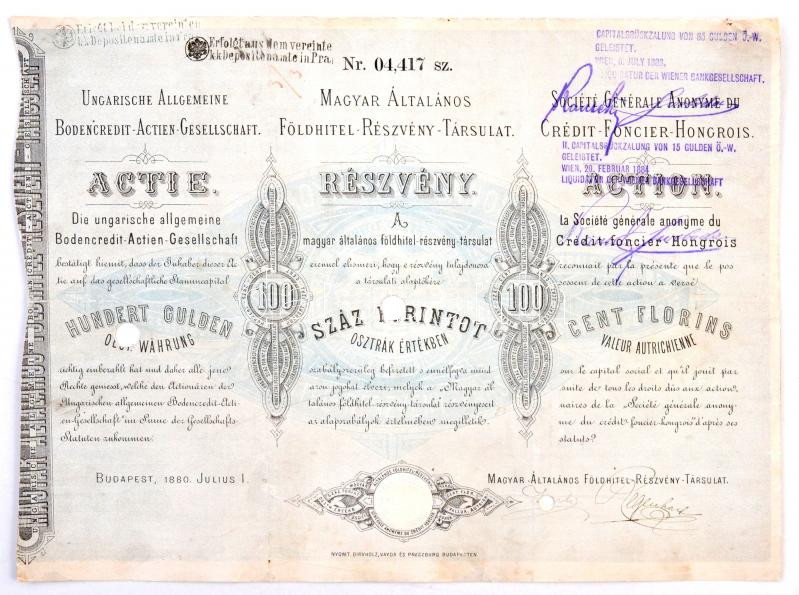 Erfolgt aus dem vereinten
k.k. Depositenamte in Prag
Erfolgt aus dem vereinte
k.k. Depositenamte in Pra,
Nr. 04,417 sz.
CAPITALSRÜCKZALUNG VON 85 GULDEN Ö.-W.
GELEISTET.
WIEN, JULY 1883.
LIQUIDATUR DER WIENER BANKGESELLSCHAFT.
II. CAPITALSRÜCKZALUNG VON 15 GULDEN Ö.-W.
GELEISTET.
WIEN, 20. FEBRUAR 1884
LIQUIDATUR DER WIENER BANKGESELLSCHAFT
UNGARISCHE ALLGEMEINE
BODENCREDIT-ACTIEN-GESELLSCHAFT.
ACTIE.
Die ungarische allgemeine
Bodencredit-Actien-Gesellschaft
bestätigt hiemit, dass der Inhaber dieser Ac
tie auf das gesellschaftliche Stammcapital
HUNDERT GULDEN
OEST. WÄHRUNG
richtig einbezahlt hat und daher alle jene
Rechte geniesst, welche den Actionären der
Ungarischen allgemeinen Bodencredit-Acti-
en-Gesellschaft im Sinne der Gesellschafts-
Statuten zukommen.
MAGYAR ÁLTALÁNOS
FÖLDHITEL-RÉSZVÉNY-TÁRSULAT.
RÉSZVÉNY.
A
magyar általános földhitel-részvény-társulat
ezennel elismeri, hogy e részvény tulajdonosa
a társulati alaptőkére
SZÁZ FORINTOT
OSZTRÁK ÉRTÉKBEN
szabályszerüleg befizetett s ennélfogva mind
azon jogokat élvezi, melyek a „Magyar ál
talános földhitel-részvény-társulat” részvényeseit
az alapszabályok értelmében megilletik.
SOCIÉTÉ GÉNÉRALE ANONYME DU
CRÉDIT-FONCIER-HONGROIS.
ACTION.
La Société générale anonyme du
Crédit-foncier-Hongrois
reconnait par la présente que le pos
sesseur de cette action a versé
CENT FLORINS
VALEUR AUTRICHIENNE
sur le capital social et qu'il jouit par
suite de tous les droits dûs aux action-
naires de la „Société générale anony-
me du crédit-foncier-hongrois” d'après ses
statuts.
100
100
BUDAPEST, 1880. JULIUS 1.
MAGYAR-ÁLTALÁNOS FÖLDHITEL-RÉSZVÉNY-TÁRSULAT.
NYOMT. BIRVHOLZ, VAYDA ÉS PRESZBURG BUDAPESTEN.